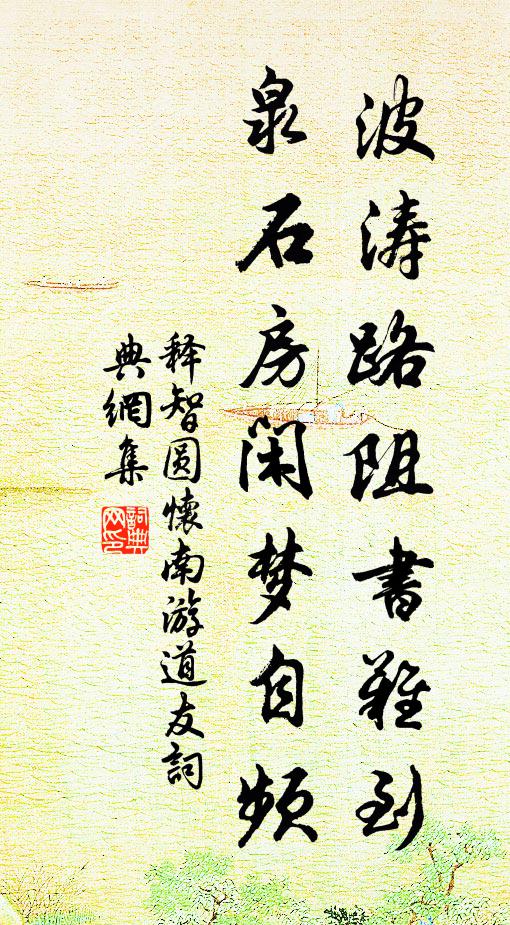 波涛路阻書難到
泉石房闲梦自频
释智圆懷南游道友詞
典網集
詞典网印